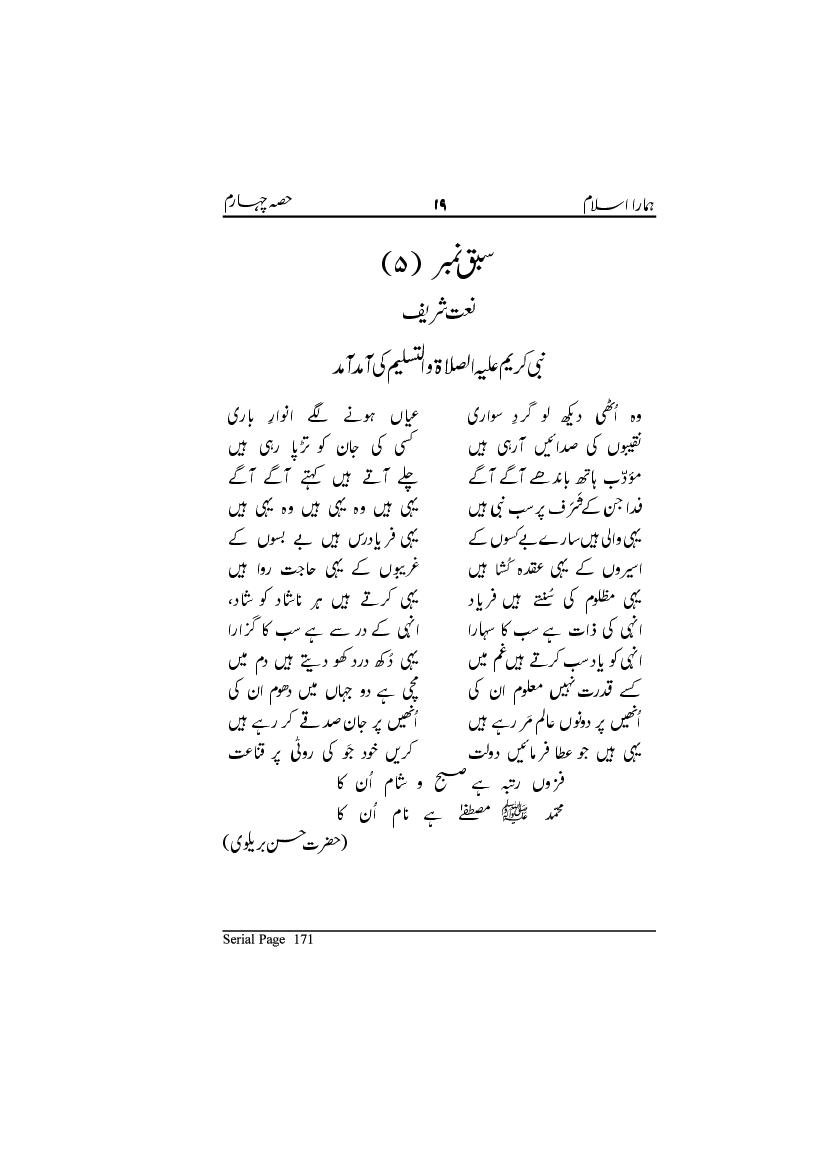 ہمارا اسلام ۱۹ حصہ چہارم
سبق نمبر (۵)
نعت شریف
نبی کریم علیہ الصلاۃ والتسلیم کی آمد آمد
وہ اُٹھی دیکھ لو گردِ سواری عیاں ہونے لگے انوارِ باری
نقیبوں کی صدائیں آرہی ہیں کسی کی جان کو تڑپا رہی ہیں
مؤدّب ہاتھ باندھے آگے آگے چلے آتے ہیں کہتے آگے آگے
فدا جن کے شَرَف پر سب نبی ہیں یہی ہیں وہ یہی ہیں وہ یہی ہیں
یہی والی ہیں سارے بےکسوں کے یہی فریادرس ہیں بے بسوں کے
اسیروں کے یہی عقدہ کُشا ہیں غریبوں کے یہی حاجت روا ہیں
یہی مظلوم کی سُنتے ہیں فریاد یہی کرتے ہیں ہر ناشاد کو شاد،
انہی کی ذات ہے سب کا سہارا انہی کے در سے ہے سب کا گزارا
انہی کو یاد سب کرتے ہیں غم میں یہی دُکھ درد کھو دیتے ہیں دم میں
کسے قدرت نہیں معلوم ان کی مچی ہے دو جہاں میں دھوم ان کی
اُنھیں پر دونوں عالم مَر رہے ہیں اُنھیں پر جان صدقے کر رہے ہیں
یہی ہیں جو عطا فرمائیں دولت کریں خود جَو کی روٹی پر قناعت
فزوں رتبہ ہے صبح و شام اُن کا
محمد ﷺ مصطفےٰ ہے نام اُن کا
(حضرت حسن بریلوی)
Serial Page 171